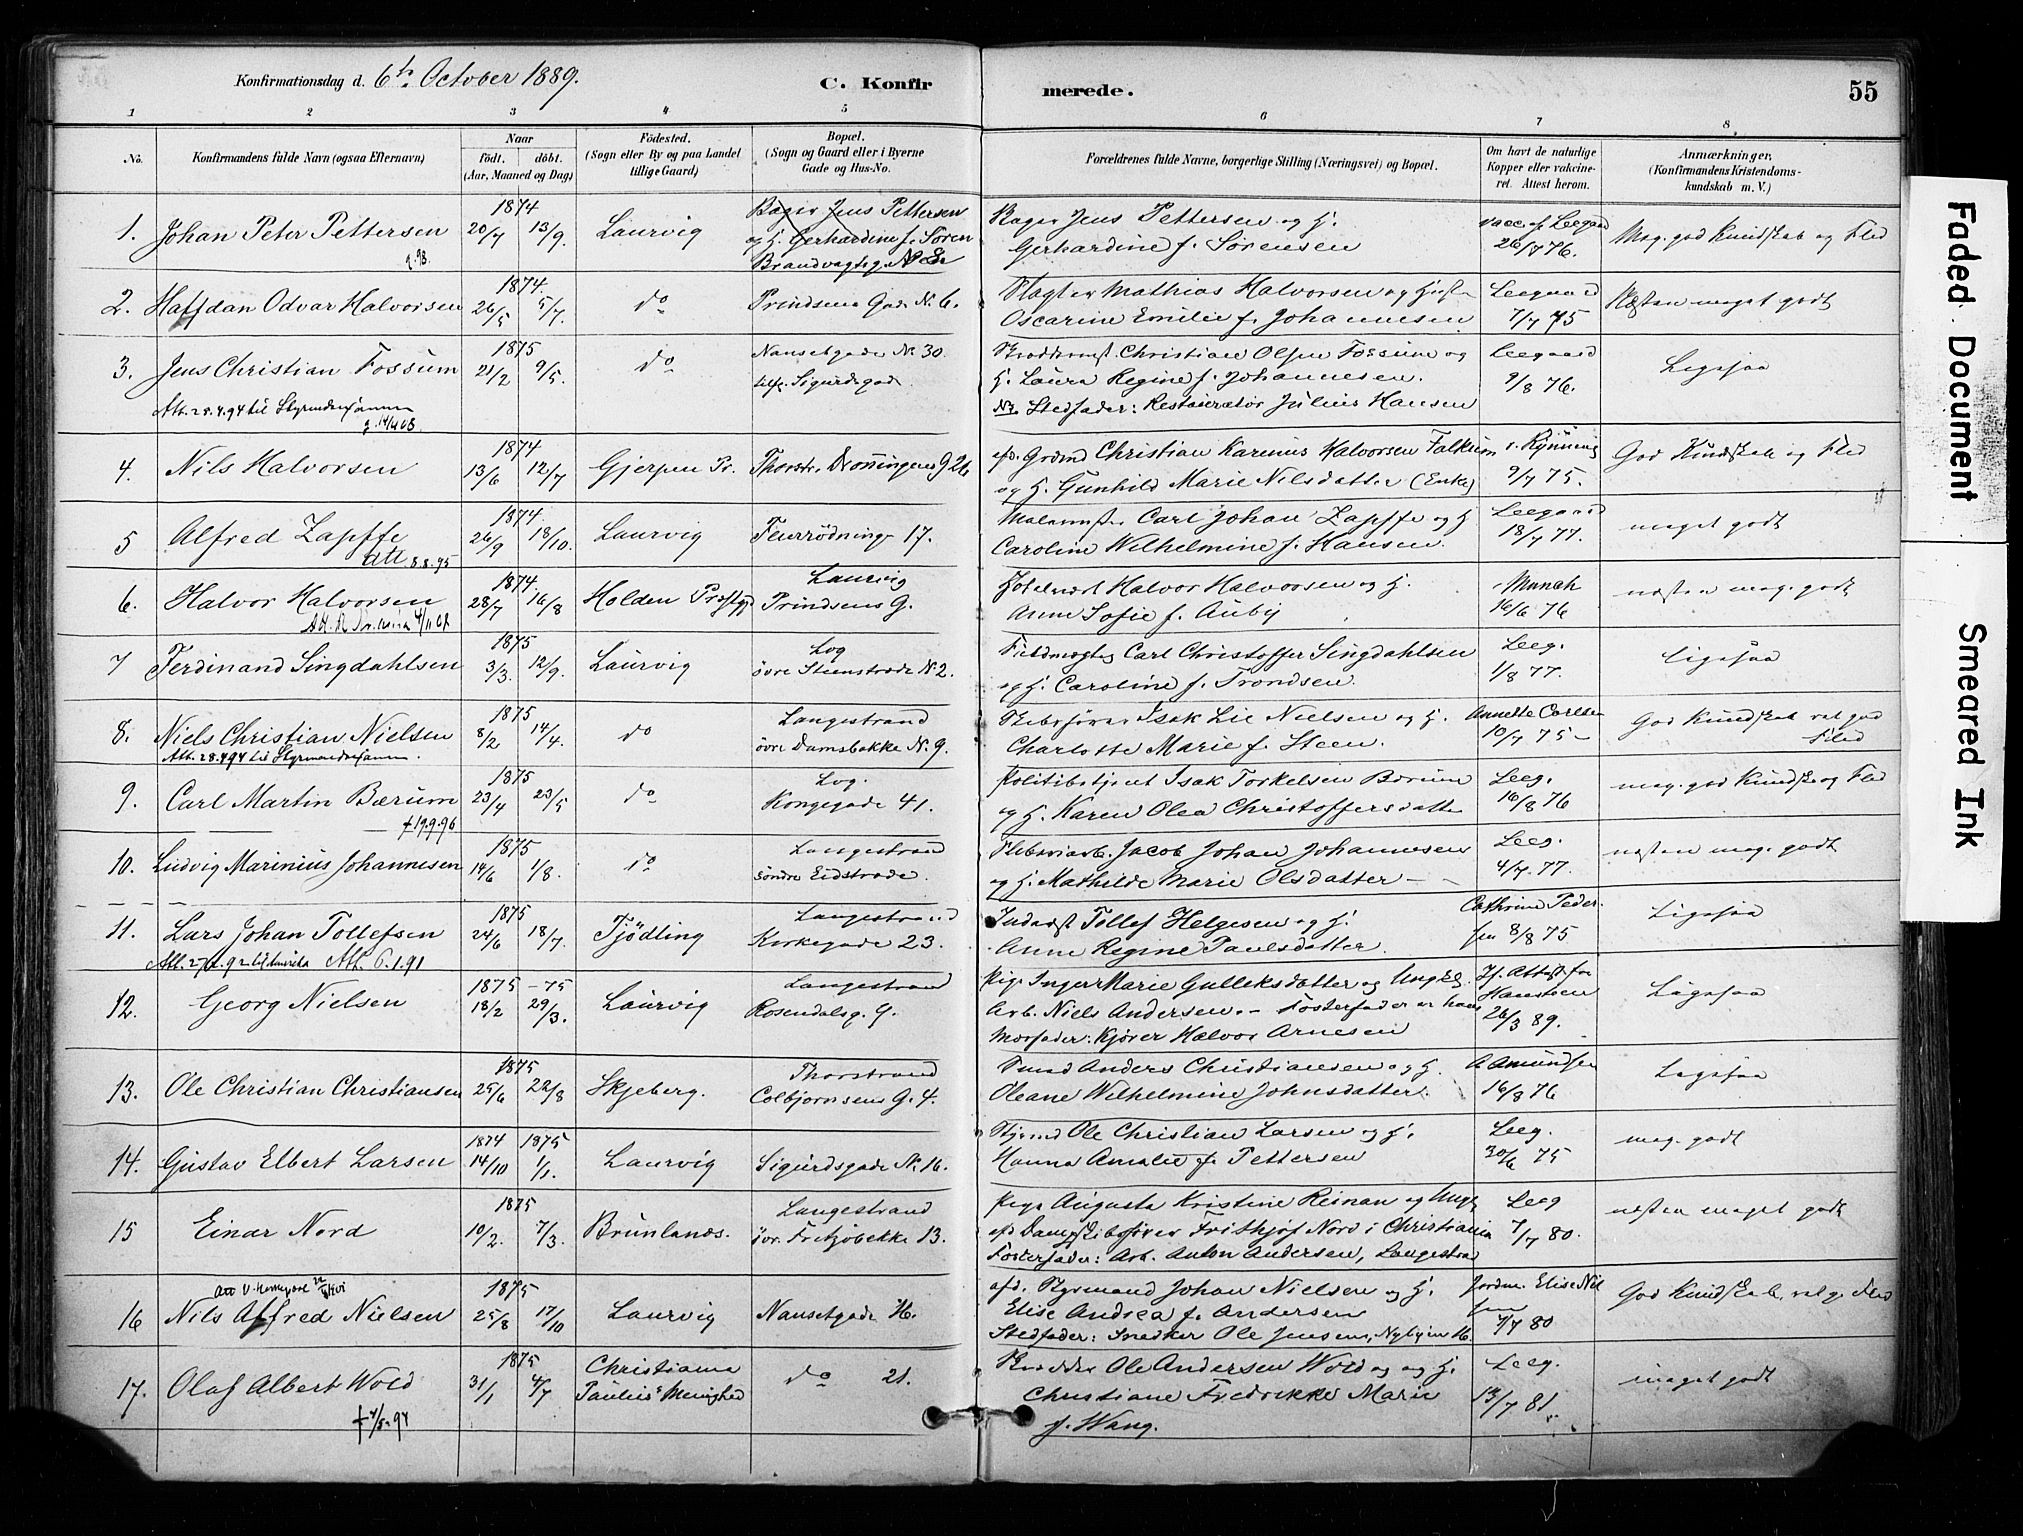 Konfirmationsdag d. 6te October 1889.
C. Konfirmerede.
55
1 2 3 4 5 6 7 8.
No.
Konfirmandens fulde Navn (ogsaa Efternavn)
Naar
födt. döbt.
(Aar, Maaned og Dag)
Födested.
(Sogn eller By og paa Landet
tillige Gaard)
Bopæl.
(Sogn og Gaard eller i Byerne
Gade og Hus-No.
Forældrenes fulde Navne, borgerlige Stilling (Næringsvei) og Bopæl.
Om havt de naturlige
Kopper eller vakcine-
ret. Attest herom.
Anmærkninger,
(Konfirmandens Kristendoms-
kundskab m. V.)
1. Johan Peter Pettersen
1874
20/7 13/9.
Laurvig
Bager Jens Pettersen
og H. Gerhardine f. Sören
Brandvagtsg.
Bager Jens Pettersen og H.
Gerhardine f. Sörensen
vacc. af Leegaard
26/7 76.
Mag. god Kundskab og Flid
2. Halfdan Odvar Halvorsen
1874.
26/5 5/7.
do
Prindsens Gade N. 6.
Slagter Mathias Halvorsen og Hustru
Oscarine Emilie f. Johannesen
Leegaard
7/7 75
Næsten meget godt
3. Jens Christian Fossum
1875
21/2 9/5.
do
Nansetgade N. 30.
Sigurdsgade.
Att. 28.4.94 til Styrmandsexamen
Christian Olsen Fossum og
H. Laura Regine f. Johannesen.
Stedfader: Restauratör Julius Hansen
Leegaard
9/8 76.
Ligesaa
4. Nils Halvorsen
1874
13/6 12/7
Gjerpen Pr.
Thorstr. Dronningens g 26
afd. Grdmd Christian Karinius Halvorsen Falkum
og H. Gunhild Marie Nilsdatter (Enke)
9/7 75.
God Kundskab og Flid
5 Alfred Zapffe
Att 8.8.95
1874.
26/9 18/10.
Laurvig
17.
Malermester Carl Johan Zapffe og H
Caroline Wilhelmine f. Hansen.
Leegaard
18/7 77.
meget godt
6. Halvor Halvorsen
1874
28/7 16/8
Holden Præstgj
Laurvig
Prindsens G.
Halvor Halvorsen og H.
Anne Sofie f. Auby
Munch
16/6 76
næsten meg. godt
7 Ferdinand Singdahlsen
1875
3/3. 12/9.
Laurvig
Log
övre Steenstrade N. 2.
Carl Christoffer Singdahlsen
og H. Caroline f. Trondsen.
Leeg.
1/8 77.
Ligesaa
8. Niels Christian Nielsen
Att. 28.4.94 til Styrmandsexamen.
1875
8/2 14/4.
do
Langestrand
övre Damsbakke N. 9.
Skibsförer Isak Lie Nielsen og H.
Charlotte Marie f. Steen.
Annette Carlsen
10/7 75
God Kundskab vel god
Flid
9. Carl Martin Bærum
† 19.9.96
1875
23/4 23/5
do
Log.
Kongegade 41.
Politibetjent Isak Torkelsen Bærum
og H. Karen Olea Christoffersdatter
Leeg.
16/8 76
meg. god Kundsk. og Flid
10. Ludvig Marinius Johannesen
1875
14/6 1/8.
do
Langestrand
söndre Eidstrade.
Jacob Johan Johannesen
og H. Mathilde Marie Olsdatter
Leeg.
4/7. 77.
næsten meg. godt
11. Lars Johan Tollefsen
Att. 6.1.91
1875
24/6 18/7.
Tjödling
Langestrand
Kirkegade 23.
Inderst Tollef Helgesen og H.
Anne Regine Paulsdatter.
Cathrine Peder-
sen 8/8 75
Ligesaa
12. Georg Nielsen
1875 - 75
18/2 29/3.
Laurvig
Langestrand
Rosendalsg. 9.
Pige Inger Marie Gulleksdatter og Ungk.
Arb. Niels Andersen. – Fosterfader er hans
Morfader: Kjörer Halvor Arnesen
If. Attest fra
Hansteen
26/3 89.
Ligesaa
13. Ole Christian Christiansen
1875
25/6 22/8
Skjeberg.
Thorstrand
Colbjornsens G. 4.
Anders Christiansen og H.
Oleane Wilhelmine Johnsdatter.
A Amundsen
16/8 76
Ligesaa
14. Gustav Elbert Larsen
1874 1875
14/10 1/1.
Laurvig
Sigurdsgade N. 16.
Ole Christian Larsen og H.
Hanna Amalie f. Pettersen
Leeg.
30/6 75
meg. godt
15 Einar Nord
1875
10/2. 7/3.
Brunlanæs.
Langestrand
13.
Pige Augusta Kristine Reinan og Ungk.
Frithjof Nord i Christiania
Fosterfader: Arb. Anton Andersen, Langestrand
Leeg
7/7 80.
næsten meget godt
16 Nils Alfred Nielsen
1875
25/8 17/10
Laurvig
Nansetgade 16.
afd. Styrmand Johan Nielsen og H.
Elise Andrea f. Andersen
Stedfader: Snedker Ole Jensen, Nybyen 16.
Jordm. Elise Niel
sen
7/7 80
God Kundskab, velg. Flid
17. Olaf Albert Wold
† 4/5.94
1875
31/1 4/7
Christiania
Paulus Menighed
do 21.
Ole Andersen Wold og H.
Christiane Fredrikke Marie
f. Wang.
Leeg.
13/7 81
meget godt
Faded Document
Smeared Ink